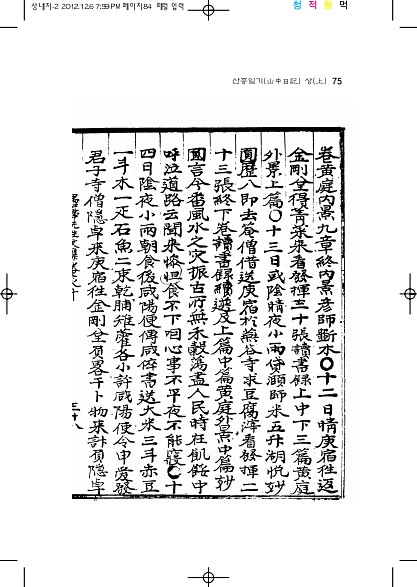 상내지-2 2012.12.6 7:59 PM 페이지84 패럴 입력
청 적 황 먹
산중일기(山中日記) 상(上) 75
卷黄庭内景九章終内景彦師斷水〇十二日晴庚宿往返
金剛堂得靑采來看發揮三十張讀書録上中下三篇黄庭
外景上篇〇十三日或陰晴夜小雨貸願師米五升湖悅妙
圓歷八卽去卷僧借送庚宿於熊谷寺求豆腐滓看發揮二
十三張終下卷讀書録續選及上篇中篇黄庭外景中篇妙
圓言今番風水之灾振古所無禾穀蕩盡人民時在飢餒中
呼泣道路云聞來慘怛食不下咽心事不平夜不能寢〇十
四日陰夜小雨朝食後咸陽便偶咸倅書送大米三斗赤豆
一斗木一疋石魚二束乾脯雉醢各小許咸陽便令申愛發
君子寺僧隱卓來庚宿往金剛堂負畧干卜物來計負隱卓
三十八